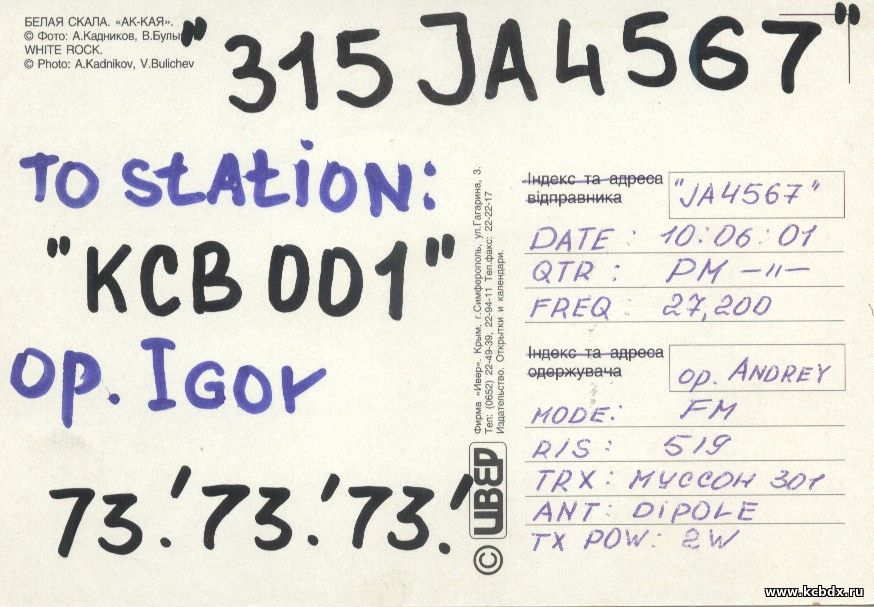 БЕЛАЯ СКАЛА. «АК-КАЯ».
© Фото: А.Кадников, В.Булы
WHITE ROCK.
© Photo: A.Kadnikov, V.Bulichev
"315 JA4567"
TO StAtiON:
"KCB 001"
op. IGOr
73!73!73!
Фирма «Ивер», Крым, г.Симферополь, ул.Гагарина, 3.
Тел: (0652) 22-49-39, 22-94-11 Тел.факс: 22-22-17
Издательство. Открытки и календари.
© ИВЕР
Індекс та адреса
відправника
"JA4567"
DATE: 10:06:01
QTR: PM -〃-
FREQ: 27,200
Індекс та адреса
одержувача
op. ANDREY
MODE: FM
R/S: 519
TRX: МУССОН 301
ANT: DiPOLE
TX POW: 2W
www.kcbdx.ru